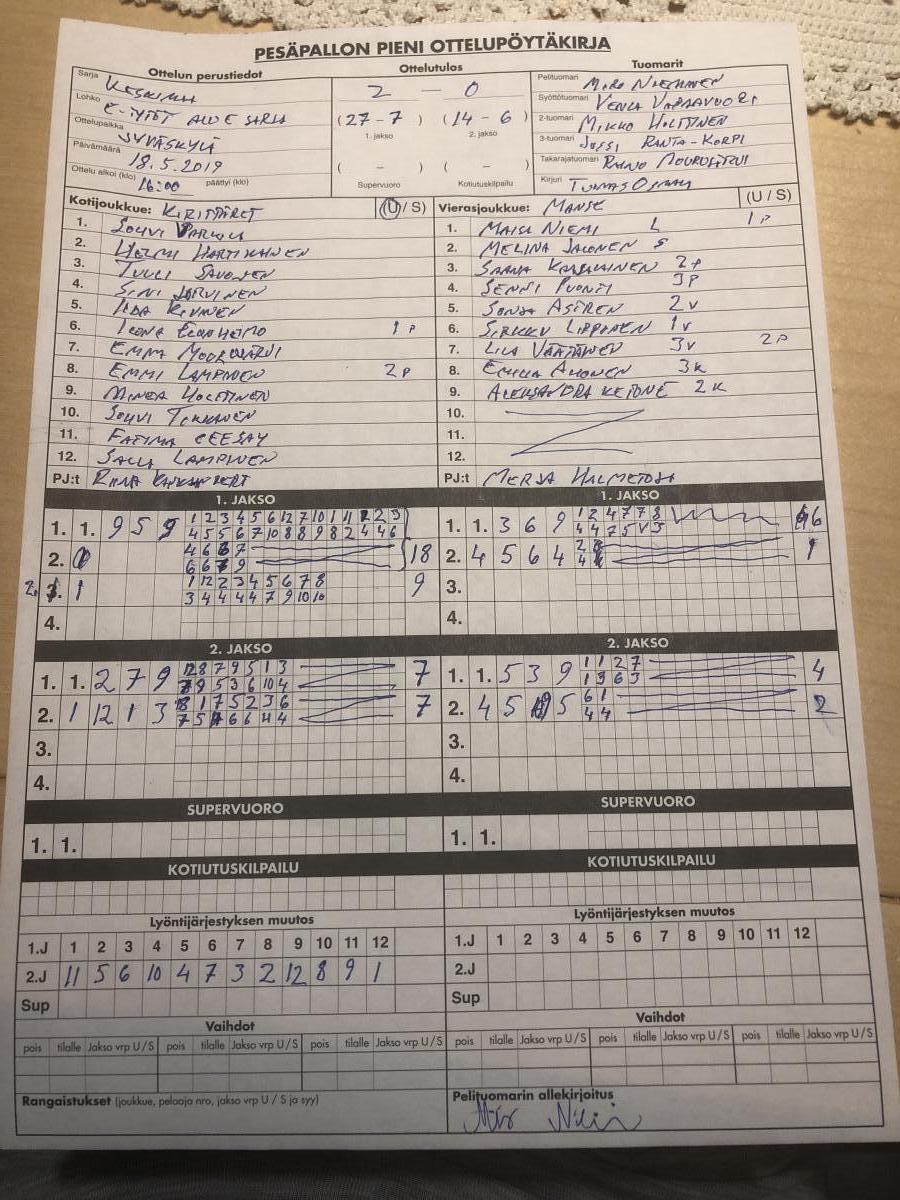 PESÄPALLON PIENI OTTELUPÖYTÄKIRJA
Ottelun perustiedot Ottelutulos Tuomarit
Sarja
Lohko E-TYTÖT ALUESARJA
Ottelupaikka JYVÄSKYLÄ
Päivämäärä 18.5.2019
Ottelu alkoi (klo) 16:00 päättyi (klo)
2 — 0
(27-7) (14-6)
1. jakso 2. jakso
( - ) ( - )
Supervuoro Kotiutuskilpailu
Pelituomari MIRO NIEMINEN
Syöttötuomari VENLA
2-tuomari MIKKO HOLTTINEN
3-tuomari JUSSI RANTA-KORPI
Takarajatuomari RAINO
Kirjuri TUOMAS
Kotijoukkue: KIRITTÄRET (U / S)
1. SOHVI
2. HELMI HARTIKAINEN
3. TUULI SAVONEN
4. SINI JÄRVINEN
5. IIDA KIVINEN
6. ILONA 1P
7. EMMA
8. EMMI LAMPINEN 2P
9. MINEA HOLTTINEN
10. SOHVI TIKKANEN
11. FATIMA CEESAY
12. SALLA LAMPINEN
PJ:t RIINA
Vierasjoukkue: MANSE (U / S)
1. MAISA NIEMI L 1P
2. MELINA JALONEN S
3. SAANA 2P
4. SENNI PUONTI 3P
5. SONJA 2V
6. SIRKKU LIPPONEN 1V
7. LILA VÄÄTÄNEN 3V 2P
8. AHONEN 3K
9. ALEKSANDRA 2K
10.
11.
12.
PJ:t MERJA HALMETOJA
1. JAKSO 1. JAKSO
1. 1. 9 5 9
1 2 3 4 5 6 12 7 10 1 11 12 2 3
4 5 5 6 7 10 8 8 9 8 2 4 4 6
2. 18
3. 1 1 12 2 3 4 5 6 7 8 9
3 4 4 4 4 7 9 10 10
4.
1. 1. 3 6 9 1 2 4 7 7 8 6
2. 4 5 6 4 1
3.
4.
2. JAKSO 2. JAKSO
1. 1. 2 7 9 12 8 7 9 5 1 3 7
9 5 3 6 10 4
2. 1 12 1 3 8 1 7 5 2 3 6 7
3.
4.
1. 1. 5 3 9 1 1 2 7 4
1 3 6 3
2. 4 5 5 6 1 2
4 4
3.
4.
SUPERVUORO SUPERVUORO
1. 1. 1. 1.
KOTIUTUSKILPAILU KOTIUTUSKILPAILU
Lyöntijärjestyksen muutos Lyöntijärjestyksen muutos
1.J 1 2 3 4 5 6 7 8 9 10 11 12 1.J 1 2 3 4 5 6 7 8 9 10 11 12
2.J 11 5 6 10 4 7 3 2 12 8 9 1 2.J
Sup Sup
Vaihdot Vaihdot
pois tilalle Jakso vrp U/S pois tilalle Jakso vrp U/S pois tilalle Jakso vrp U/S pois tilalle Jakso vrp U/S pois tilalle Jakso vrp U/S pois tilalle Jakso vrp U/S
Rangaistukset (joukkue, pelaaja nro, jakso vrp U / S ja syy) Pelituomarin allekirjoitus